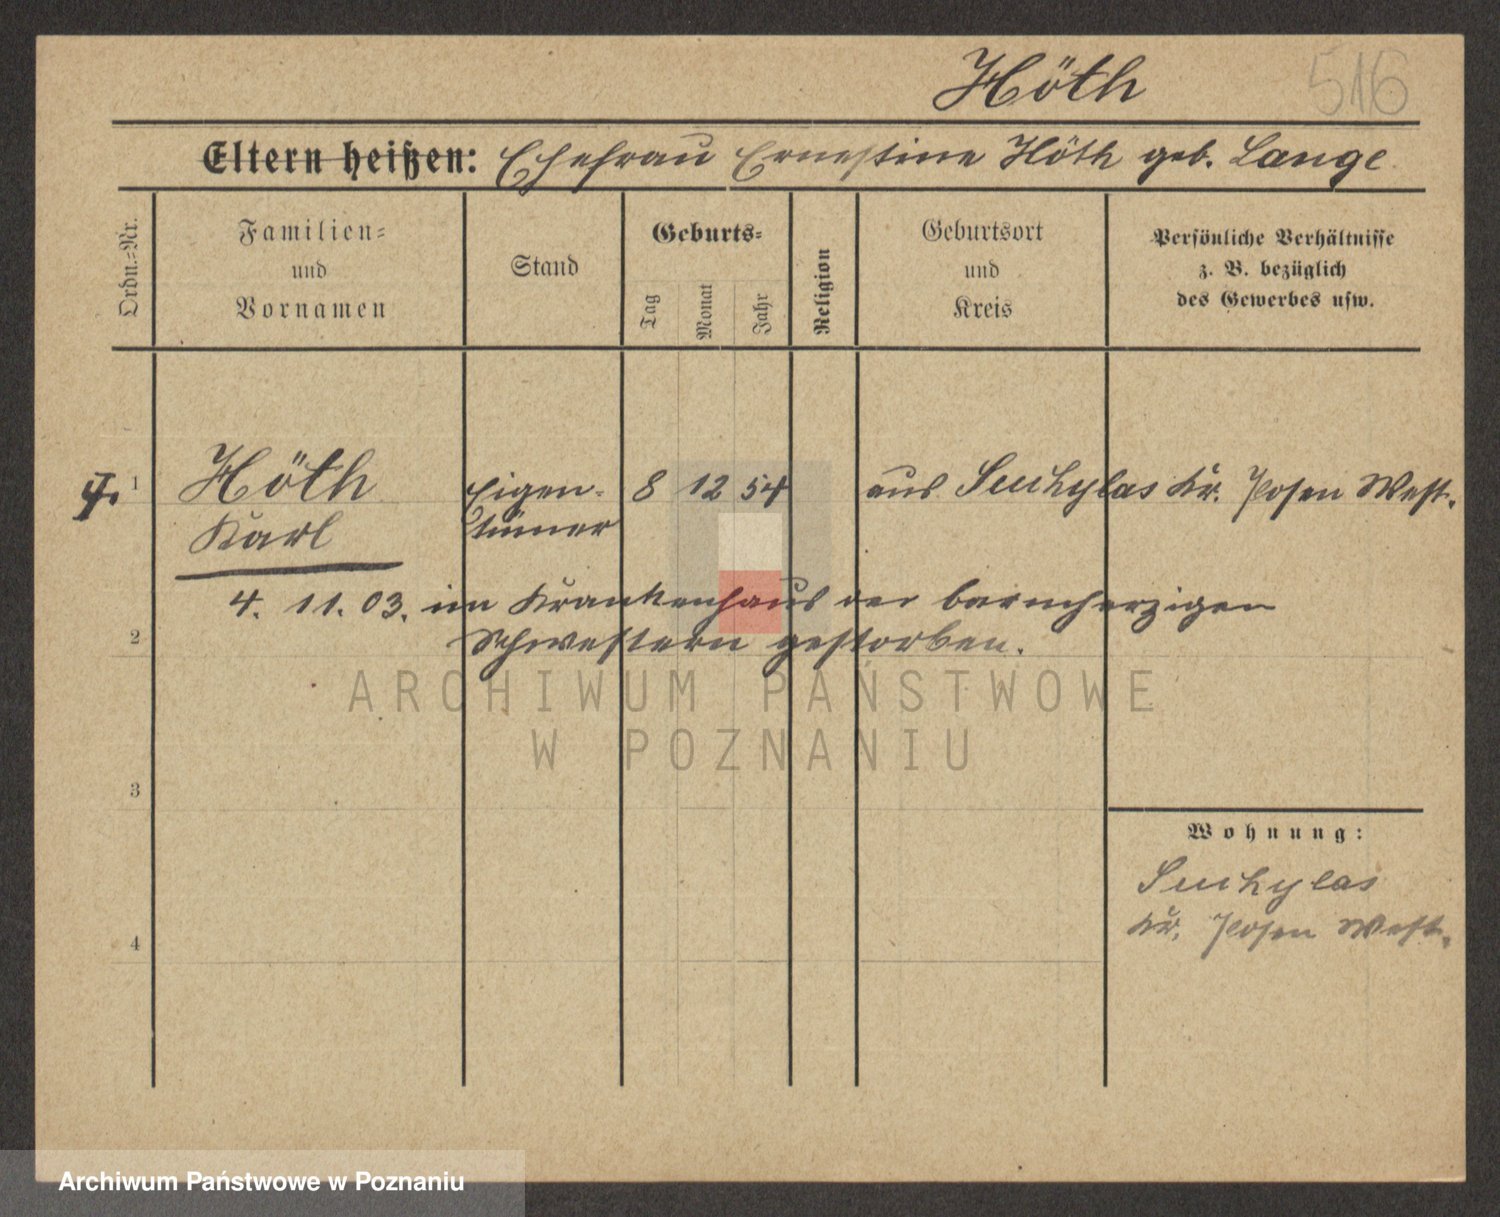 Höth 516
Eltern heißen: Ehefrau Ernestine Höth geb. Lange
Ordn.=Nr.
Familien=
und
Vornamen
Stand
Geburts=
Tag
Monat
Jahr
Religion
Geburtsort
und
Kreis
Persönliche Verhältnisse
z. B. bezüglich
des Gewerbes usw.
1 Höth Eigen- 8 12 54 aus Suchylas Kr. Posen West.
Karl tümer
4. 11. 03. im Krankenhaus der barmherzigen
2 Schwestern gestorben.
ARCHIWUM PAŃSTWOWE
W POZNANIU
3
Wohnung:
Suchylas
Kr. Posen West.
4
Archiwum Państwowe w Poznaniu